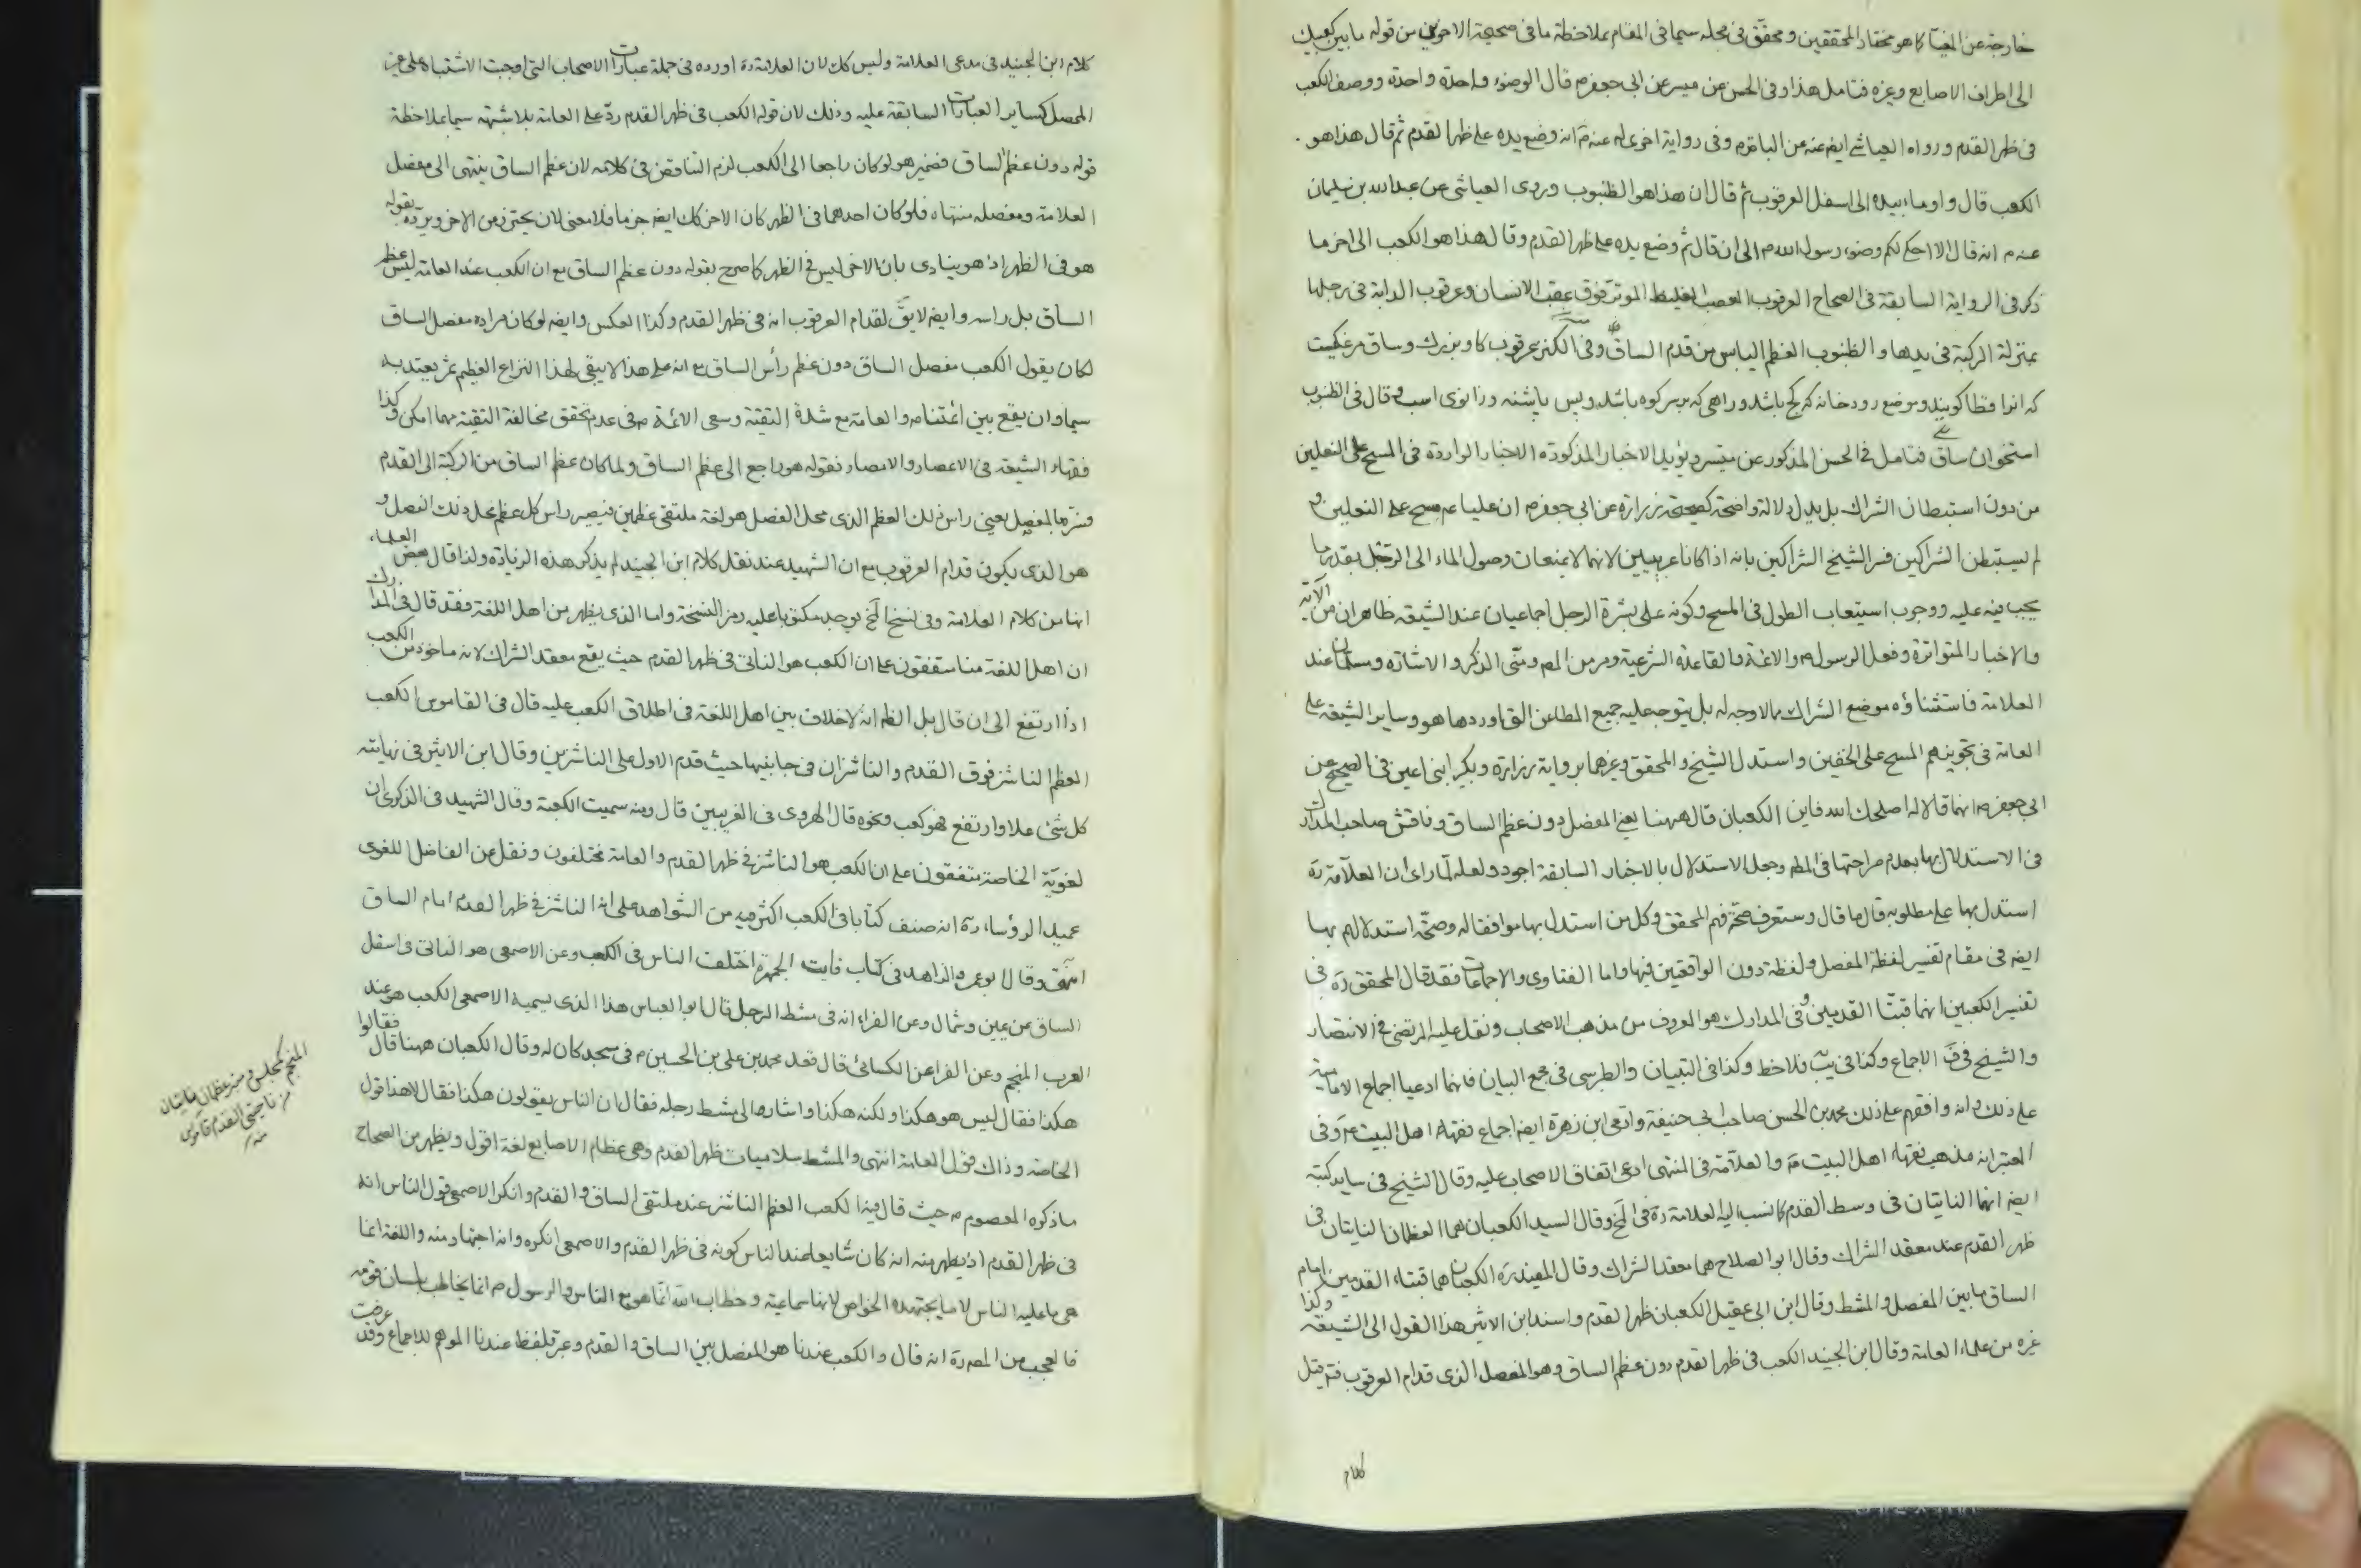 خارجة عن المغيا كما هو مختار المحققين ومحقق في محله سيما في المقام بملاحظة ما في صحيحة الاخوين من قوله ما بين كعبيك
الى اطراف الاصابع وغيره فتامل هذا وفي الحسن عن ميسر عن ابي جعفر م قال الوضوء واحدة واحدة ووصف الكعب
في ظهر القدم ورواه العياشي ايضا عنه عن الباقر م وفي رواية اخرى له عنه م انه وضع يده على ظهر القدم ثم قال هذا هو
الكعب قال واوماء بيده الى اسفل العرقوب ثم قال ان هذا هو الظنبوب وروى العياشي عن عبد الله بن سليمان
عنه م انه قال الا احكي لكم وضوء رسول الله م الى ان قال ثم وضع يده على ظهر القدم وقال هذا هو الكعب الى اخر ما
ذكر في الرواية السابقة في الصحاح العرقوب العصب الغليظ الموتر فوق عقب الانسان وعرقوب الدابة في رجلها
بمنزلة الركبة في يدها والظنبوب العظم اليابس من قدم الساق وفي الكنز عرقوب كاو بزرك وساق مرغيست
كه انرا قطا كويند وموضع رودخانه كه كج باشد وراهي كه بر سر كوه باشد وپس پاشنه وزانوى اسب وقال في الظنبوب
استخوان ساق فتامل في الحسن المذكور عن ميسر ويؤيد الاخبار المذكورة الاخبار الواردة في المسح على النعلين
من دون استبطان الشراك بل يدل دلالة واضحة كصحيحة زرارة عن ابي جعفر م ان عليا ع م مسح على النعلين و
لم يستبطن الشراكين فسر الشيخ الشراكين بانه اذا كانا عربيين لانهما لا يمنعان وصول الماء الى الرجل بقدر ما
يجب فيه عليه ووجوب استيعاب الطول في المسح وكونه على بشرة الرجل اجماعيان عند الشيعة ظاهران من الآية
والاخبار المتواترة وفعل الرسول م والائمة والقاعدة الشرعية ومر من المص ومتى الذكر والاشارة ومسلمان عند
العلامة فاستثناؤه موضع الشراك مما لا وجه له بل يتوجه عليه جميع المطاعن التي اوردها هو وساير الشيعة على
العامة في تجويزهم المسح على الخفين واستدل الشيخ والمحقق وغيرهما برواية زرارة وبكير ابني اعين في الصحيح عن
ابي جعفر م انهما قالا له اصلحك الله فاين الكعبان قال ههنا يعني المفصل دون عظم الساق وناقش صاحب المدارك
في الاستدلال بها بعدم صراحتها في المط وجعل الاستدلال بالاخبار السابقة اجود ولعله لما راى ان العلامة ره
استدل بها على مطلوبه قال ما قال وستعرف صحة فهم المحقق وكل من استدل بها موافقا له وصحة استدلالهم بها
ايضا في مقام تفسير لفظة المفصل ولفظة دون الواقعتين فيها واما الفتاوى والاجماعات فقد قال المحقق ره في
تفسير الكعبين انهما قبتا القدمين وفي المدارك هو المعروف من مذهب الاصحاب ونقل عليه المرتضى في الانتصار
والشيخ في ف الاجماع وكذا في يب فلاحظ وكذا في التبيان والطبرسي في مجمع البيان فانهما ادعيا اجماع الامامية
على ذلك وانه وافقهم على ذلك محمد بن الحسن صاحب ابي حنيفة وادعى ابن زهرة ايضا اجماع فقهاء اهل البيت ع م وفي
المعتبر انه مذهب فقهاء اهل البيت م والعلامة في المنتهى ادعى اتفاق الاصحاب عليه وقال الشيخ في ساير كتبه
ايضا انهما النابتان في وسط القدم كما نسب اليه العلامة ره في لخ وقال السيد الكعبان هما العظمان النابتان في
ظهر القدم عند معقد الشراك وقال ابو الصلاح هما معقد الشراك وقال المفيد ره الكعبان هما قبتاء القدمين امام
الساق ما بين المفصل والمشط وقال ابن ابي عقيل الكعبان ظهر القدم واسند ابن الاثير هذا القول الى الشيعة وكذا
غيره من علماء العامة وقال ابن الجنيد الكعب في ظهر القدم دون عظم الساق وهو المفصل الذي قدام العرقوب
كلام
كلام ابن الجنيد في مدعى العلامة وليس كك لان العلامة ره اورده في جملة عبارات الاصحاب التي اوجبت الاشتباه على غير
المحصل كساير العبارات السابقة عليه وذلك لان قوله الكعب في ظهر القدم رد على العامة بلا شبهة سيما بملاحظة
قوله دون عظم الساق فضمير هو لو كان راجعا الى الكعب لزم التناقض في كلامه لان عظم الساق ينتهى الى مفصل
العلامة ومفصله منتهاه فلو كان احدهما في الظهر كان الاخر كك ايضا جزما فلا معنى لان يحترز من الاخر ويرده بقوله
هو في الظهر اذ هو ينادى بان الاخر ليس في الظهر كما صرح بقوله دون عظم الساق مع ان الكعب عند العامة ليس عظم
الساق بل راسه وايضا لا يق لقدام العرقوب انه في ظهر القدم وكذا العكس وايضا لو كان مراده مفصل الساق
لكان يقول الكعب مفصل الساق دون عظم رأس الساق مع انه على هذا لا يبقى لهذا النزاع العظيم ثمر يعتد به
سيما وان يقع بين ائمتنا م والعامة مع شدة التقية وسعى الائمة م في عدم تحقق مخالفة التقية مهما امكن وكذا
فقهاء الشيعة في الاعصار والامصار فقوله هو راجع الى عظم الساق ولما كان عظم الساق من الركبة الى القدم
فسرها بالمفصل يعني راس ذلك العظم الذي محل الفصل هو لغة ملتقى عظمين فيصير راس كل عظم محل ذلك الفصل و
هو الذي يكون قدام العرقوب مع ان الشهيد عند نقل كلام ابن الجنيد لم يذكر هذه الزيادة ولذا قال بعض العلماء
انها من كلام العلامة وفي نسخ لخ يوجد مكتوبا عليه رمز النسخة واما الذي يظهر من اهل اللغة فقد قال في المدارك
ان اهل اللغة منا متفقون على ان الكعب هو الناتي في ظهر القدم حيث يقع معقد الشراك لانه ماخوذ من الكعب
اذا ارتفع الى ان قال بل الظ انه لا خلاف بين اهل اللغة في اطلاق الكعب عليه قال في القاموس الكعب
العظم الناشز فوق القدم والناشزان في جانبيها حيث قدم الاول على الناشزين وقال ابن الاثير في نهايته
كل شئ علا وارتفع فهو كعب ونحوه قال الهروى في الغريبين قال ومنه سميت الكعبة وقال الشهيد في الذكرى ان
لغوية الخاصة متفقون على ان الكعب هو الناشز في ظهر القدم والعامة مختلفون ونقل عن الفاضل اللغوى
عميد الرؤساء ره انه صنف كتابا في الكعب اكثر فيه من الشواهد على انه الناشز في ظهر القدم امام الساق
انتهى وقال ابو عمر والزاهد في كتاب فايت الجمهرة اختلف الناس في الكعب وعن الاصمعي هو الناتي في اسفل
الساق عن يمين وشمال وعن الفراء انه في مشط الرجل قال ابو العباس هذا الذي يسميه الاصمعي الكعب هو عند
العرب المنجم وعن الفراء عن الكسائي قال قعد محمد بن علي بن الحسين م في مسجد كان له وقال الكعبان ههنا قال فقالوا
هكذا فقال ليس هو هكذا ولكنه هكذا واشار الى مشط رجله فقال ان الناس يقولون هكذا فقال لا هذا قول
الخاصة وذاك قول العامة انتهى والمشط سلاميات ظهر القدم وهي عظام الاصابع لغة اقول ويظهر من الصحاح
ما ذكره المعصوم م حيث قال فيه الكعب العظم الناشز عند ملتقى الساق والقدم وانكر الاصمعي قول الناس انه
في ظهر القدم اذ يظهر منه انه كان شايعا عند الناس كونه في ظهر القدم والاصمعي انكره وانه اجتهاد منه واللغة انما
هي ما عليه الناس لا ما يجتهده الخواص لانها سماعية وخطاب الله انما هو مع الناس والرسول م انما يخاطب بلسان قومه
فالعجب من المص ره انه قال والكعب عندنا هو المفصل بين الساق والقدم وعبر بلفظ عندنا الموهم للاجماع وقد عرفت
المنجم كمجلس ومنبر عظمان ناتيان
من ناحيتي القدم قاموس
منه